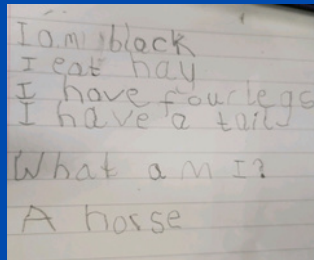 I am black
I eat hay
I have four legs
I have a tail
What am I?
A horse